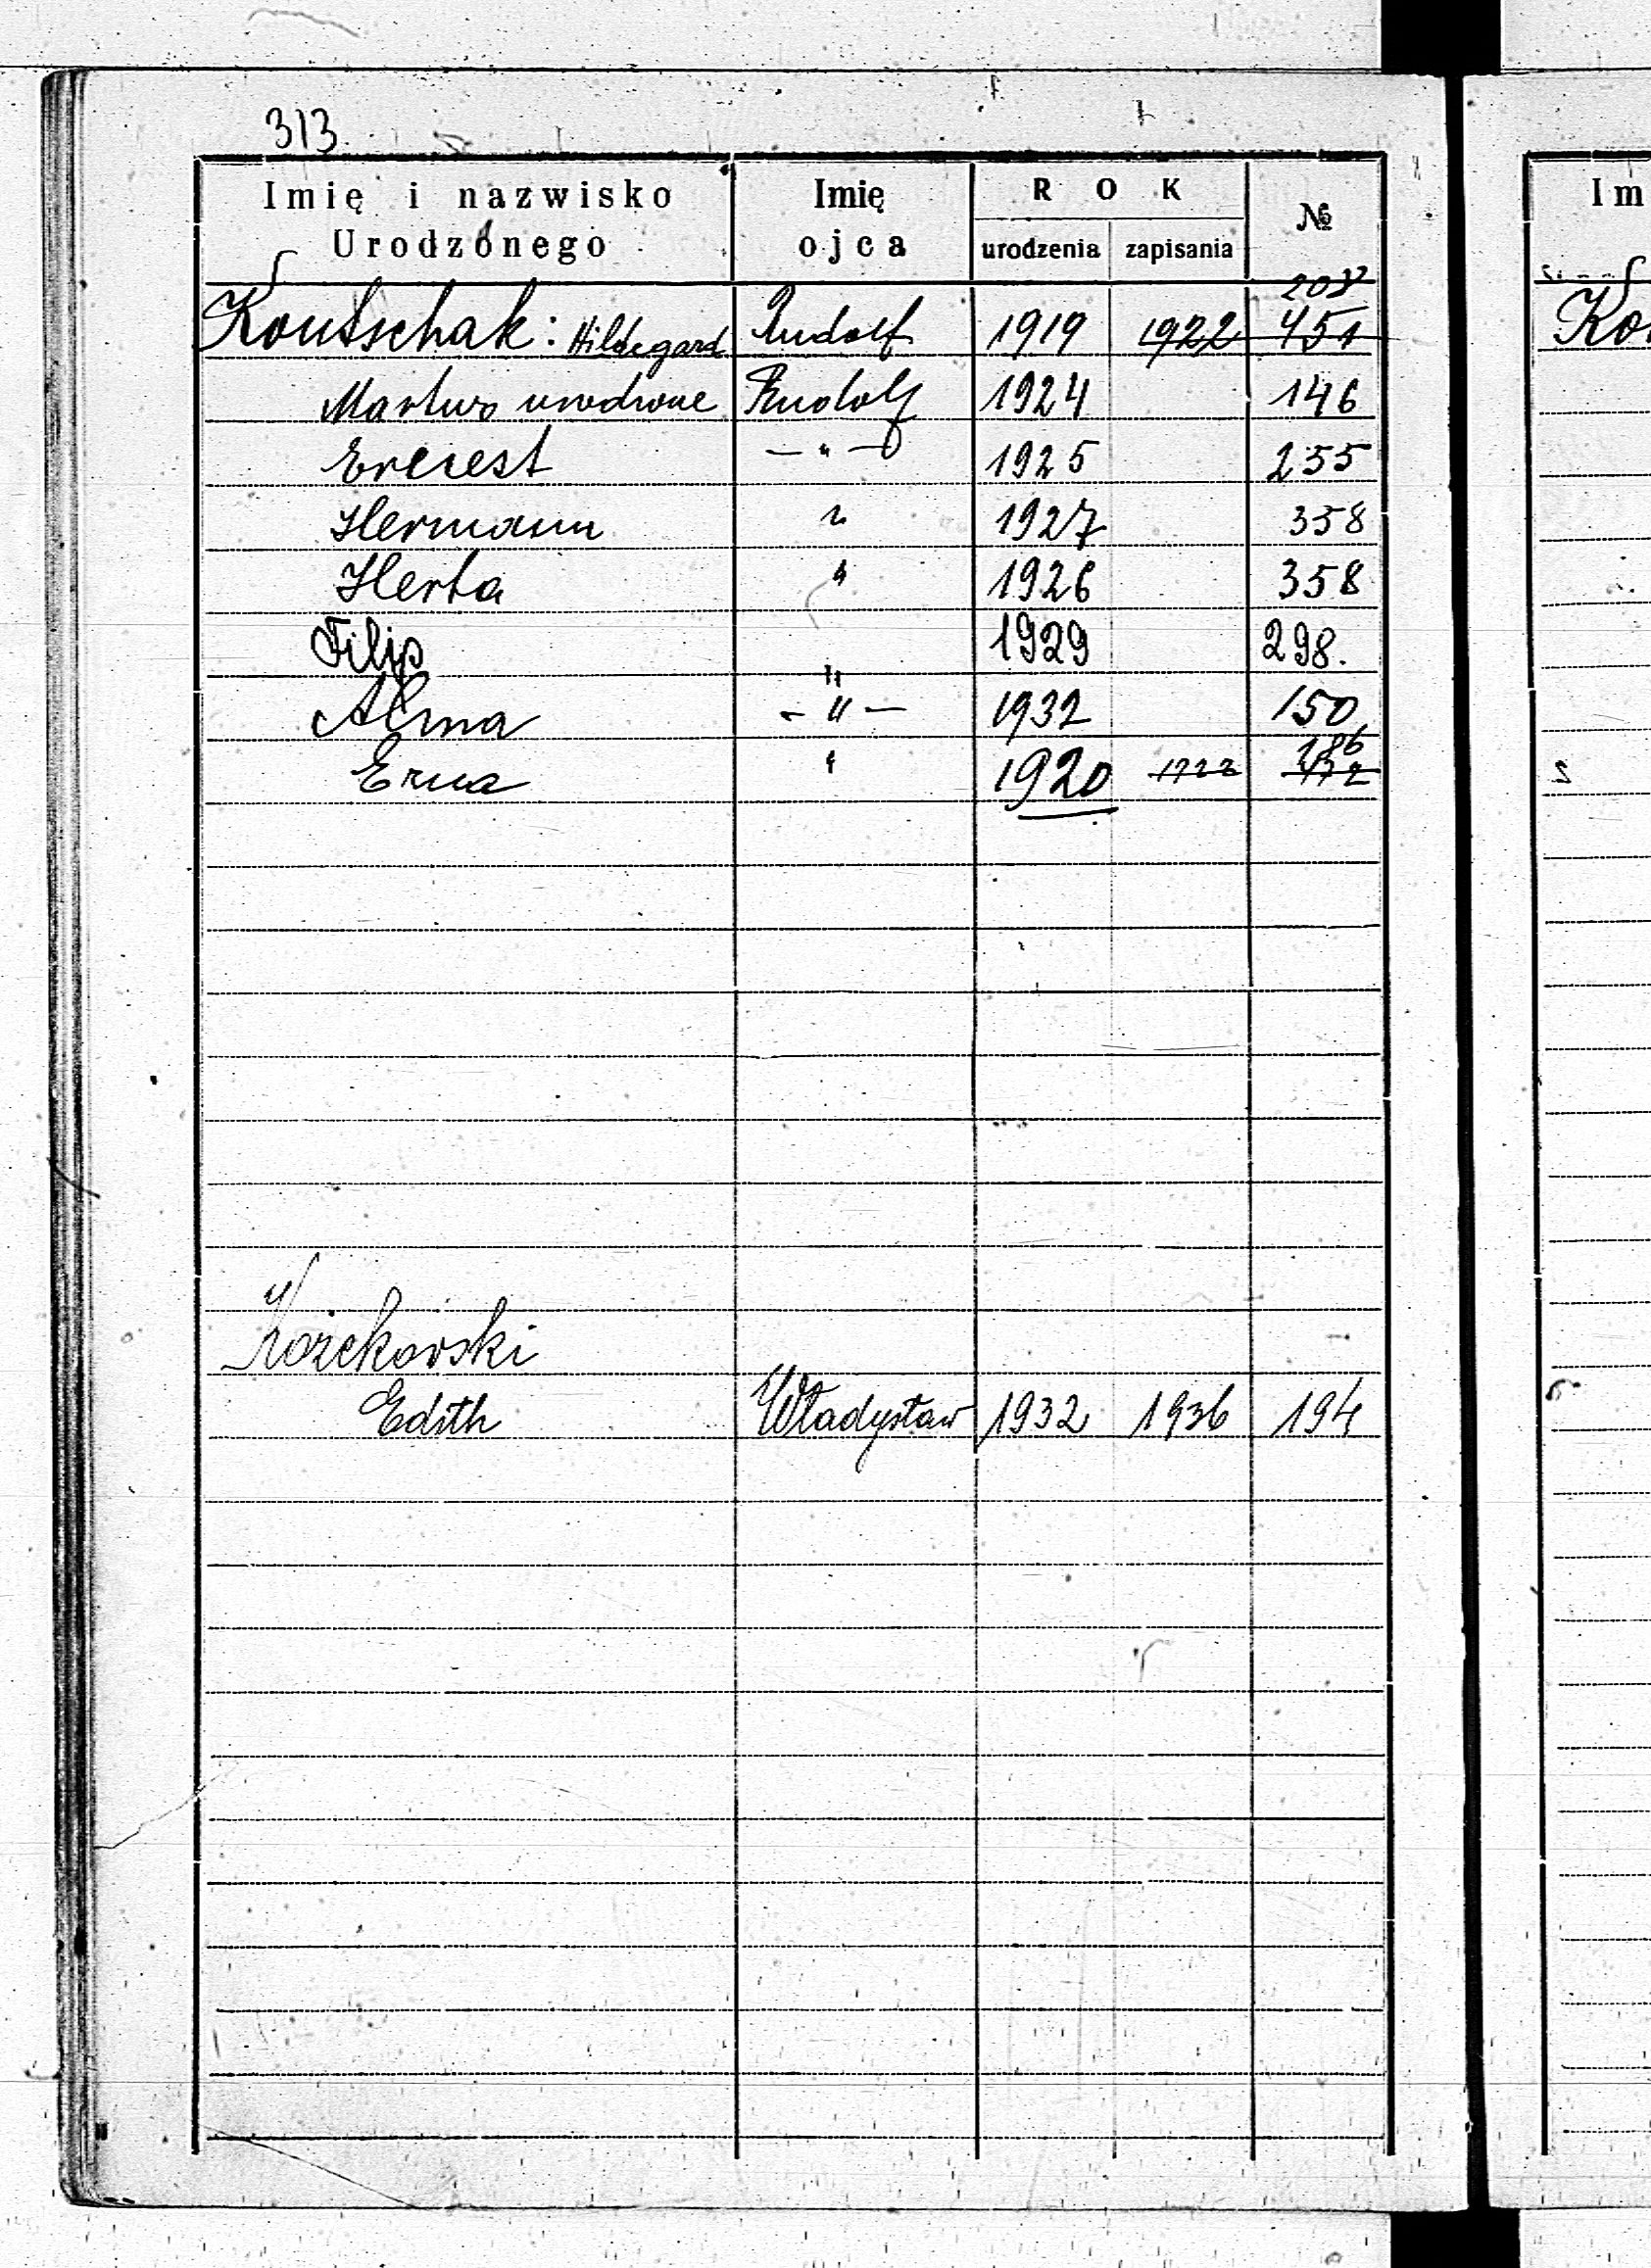 313
Imię i nazwisko Urodzonego Imię ojca ROK urodzenia zapisania №
208
Koutschak: Hildegard Rudolf 1919 1922 451
Martwo urodzone Rudolf 1924 146
Ernest — " — 1925 255
Hermann " 1927 358
Herta " 1926 358
Filip " 1929 298.
Alma — " — 1932 150
186
Erna " 1920 1922
Kożekowski
Edith Władysław 1932 1936 194
Im
Ko